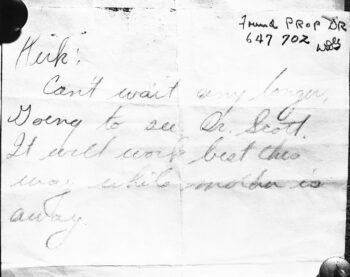 Found PROP DR
647 702
Kirk:
Can't wait any longer,
Going to see Dr. Scott.
It will work best this
way while mother is
away